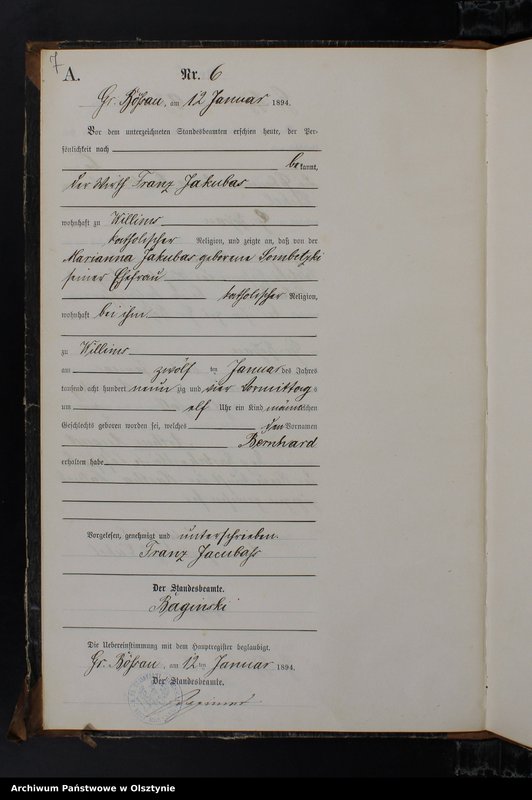 7
A.
Nr. 6
Gr. Bößau, am 12 Januar 1894.
Vor dem unterzeichneten Standesbeamten erschien heute, der Per-
sönlichkeit nach
bekannt,
der Wirth Franz Jakubas
wohnhaft zu Willims
katholischer Religion, und zeigte an, daß von der
Marianna Jakubas geborene Sombetzki
seiner Ehefrau
katholischer Religion,
wohnhaft bei ihm
zu Willims
am zwölf ten Januar des Jahres
tausend acht hundert neun zig und vier Vormittag s
um elf Uhr ein Kind männlichen
Geschlechts geboren worden sei, welches den Vornamen
Bernhard
erhalten habe
Vorgelesen, genehmigt und unterschrieben.
Franz Jacubaß
Der Standesbeamte.
Baginski
Die Uebereinstimmung mit dem Hauptregister beglaubigt.
Gr. Bößau, am 12 ten Januar 1894.
Der Standesbeamte.
Archiwum Państwowe w Olsztynie